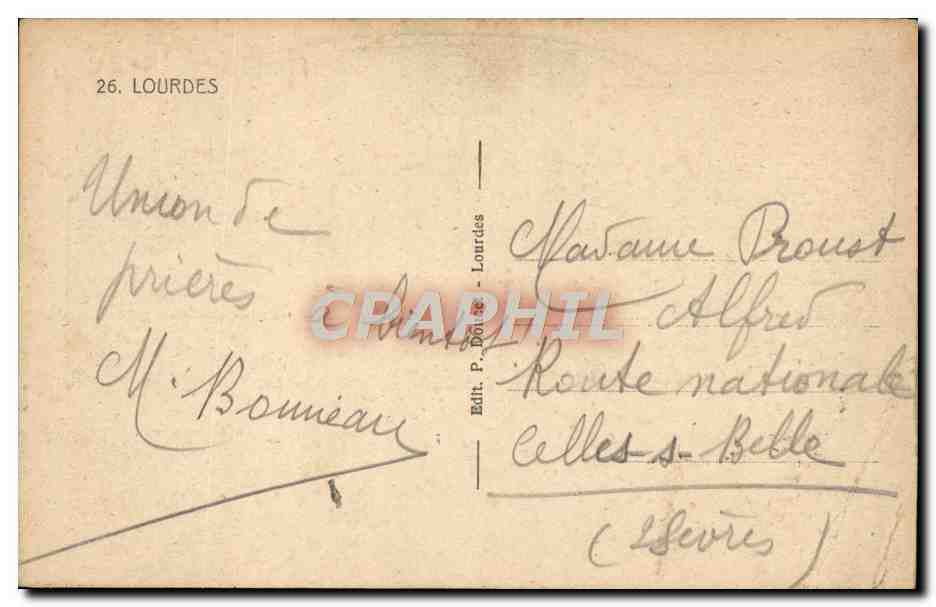 26. LOURDES
Union de
prières à bientôt
M. Bonneau
Edit. P. Doucet - Lourdes
CPAPHIL
Madame Proust
Alfred
Route nationale
Celles-s-Belle
(2 Sèvres)